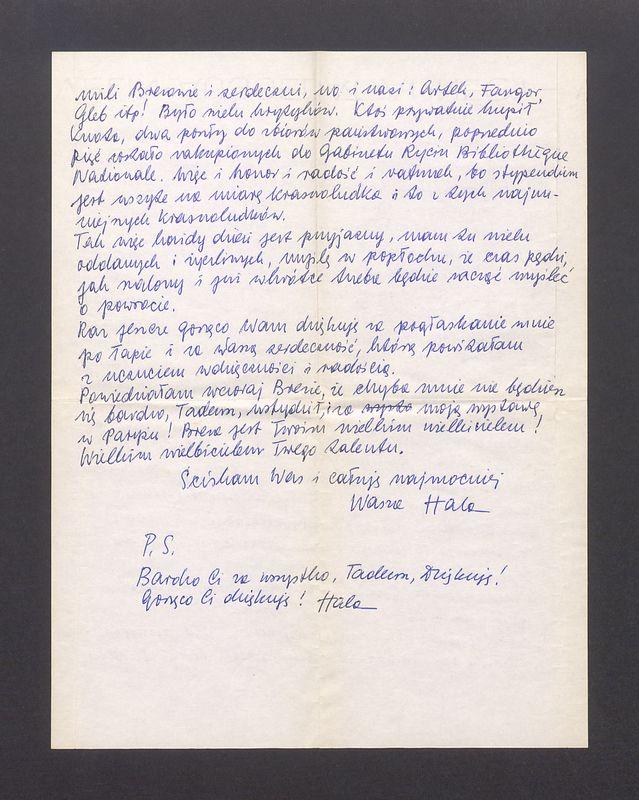 mili Brezowie i serdeczni, no i nasi: Artek, Fangor,
Gleb itp! Było wielu krytyków. Ktoś prywatnie kupił
Knota, dwa poszły do zbiorów państwowych, poprzednio
pięć zostało zakupionych do Gabinetu Rycin Bibliothèque
Nationale. Więc i honor i radość i ratunek, bo stypendium
jest uszyte na miarę krasnoludka i to z tych najmn-
niejszych krasnoludków.
Tak więc każdy dzień jest przyjazny, mam tu wielu
oddanych i życzliwych, myślę w popłochu, że czas pędzi,
jak szalony i już wkrótce trzeba będzie zacząć myśleć
o powrocie.
Raz jeszcze gorąco Wam dziękuję za pogłaskanie mnie
po łapie i za Waszą serdeczność, którą powitałam
z uczuciem wdzięczności i radością.
Powiedziałam wczoraj Brezie, że chyba mnie nie będziesz
się bardzo, Tadeusz, wstydził, i za moją wystawę,
w Paryżu! Breza jest Twoim wielkim wielbicielem!
Wielkim wielbicielem Twego talentu.
Ściskam Was i całuję najmocniej
Wasza Hala
P.S.
Bardzo Ci za wszystko, Tadeusz, Dziękuję!
Gorąco Ci dziękuję! Hala